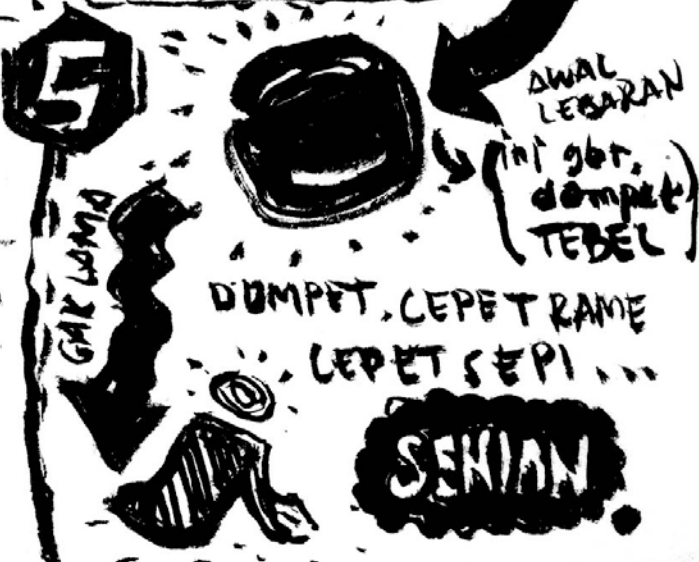 5
AWAL
LEBARAN
(ini gbr.
dompet
TEBEL)
GAK LAMA
DOMPET, CEPET RAME
CEPET SEPI...
SEKIAN.